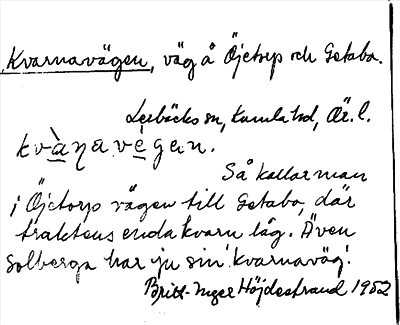 Kvarnavägen, väg å Öjetorp och Getabo.
Lerbäcks sn, Kumla hd, Ör. l.
kvànavégen.
Så kallar man
i Öjetorp vägen till Getabo, där
traktens enda kvarn låg. Även
Solberga har ju sin 'kvarnaväg'.
Britt-Inger Höjdestrand 1952